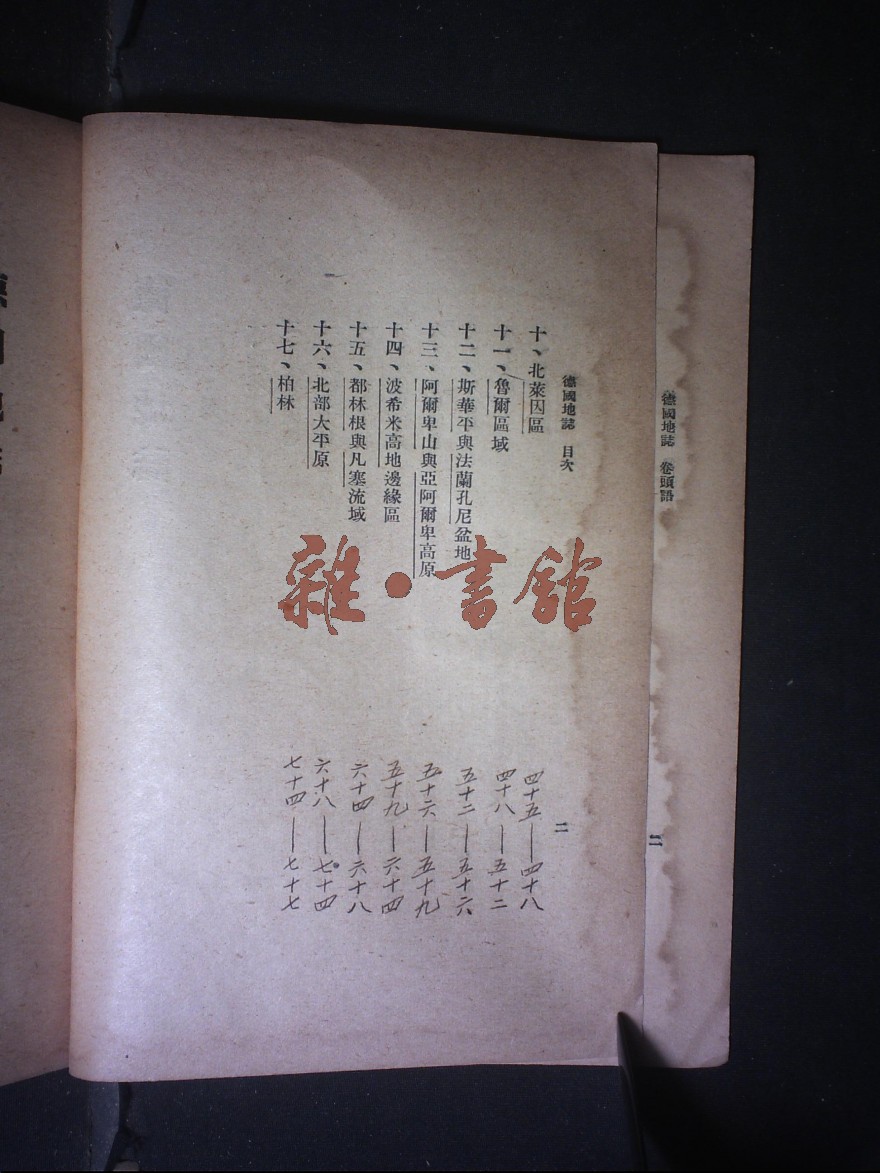 德國地誌 卷頭語
二
德國地誌 目次
二
十、北萊因區 四十五——四十八
十一、魯爾區域 四十八——五十二
十二、斯華平與法蘭孔尼盆地 五十二——五十六
十三、阿爾卑山與亞阿爾卑高原 五十六——五十九
十四、波希米高地邊緣區 五十九——六十四
十五、都林根與凡塞流域 六十四——六十八
十六、北部大平原 六十八——七十四
十七、柏林 七十四——七十七
雜·書館